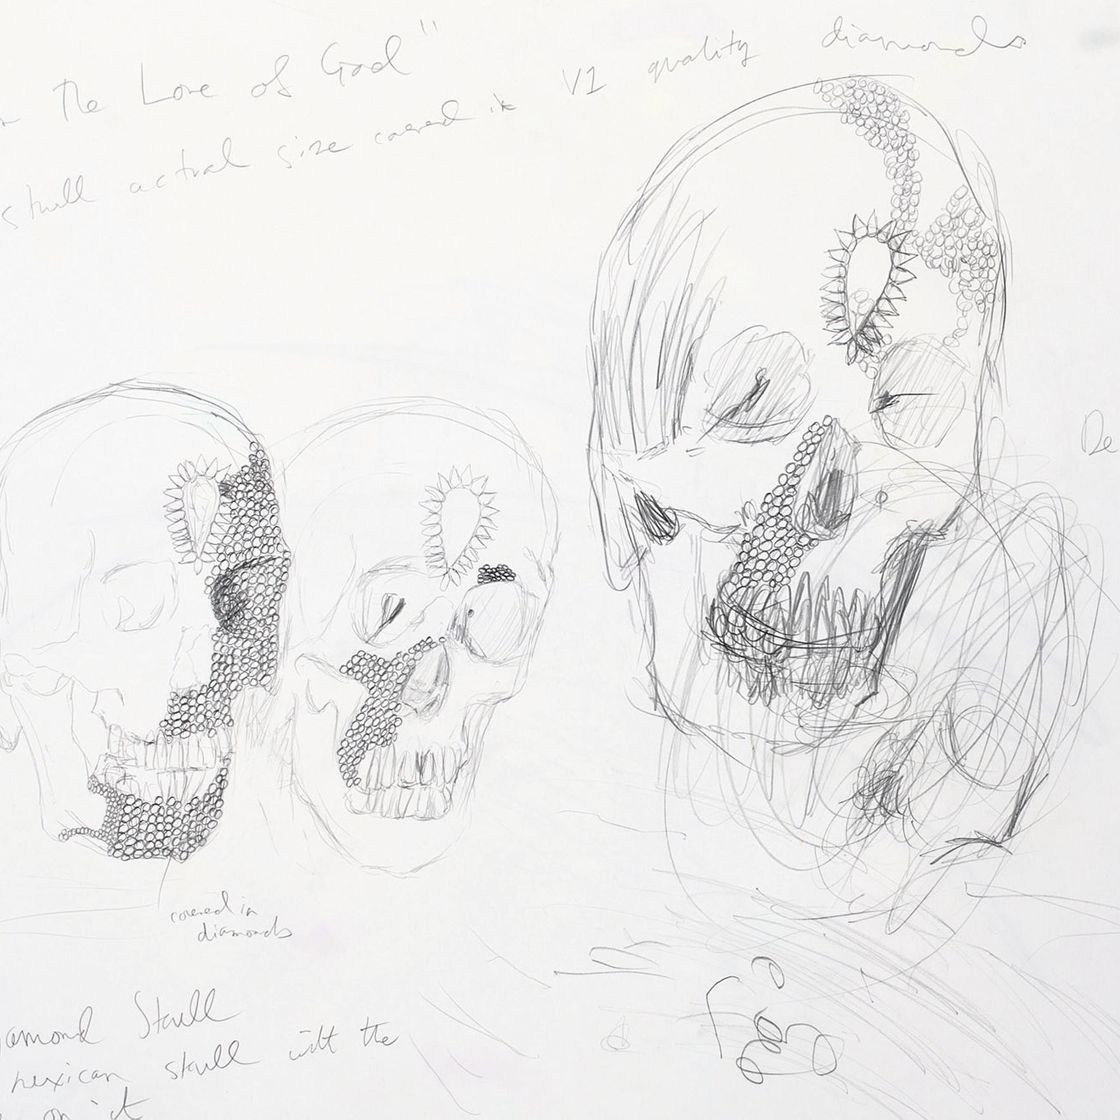 the Love of God"
skull actual size covered in
V1 quality diamonds
De
covered in
diamonds
amond Skull
mexican skull with the
on it